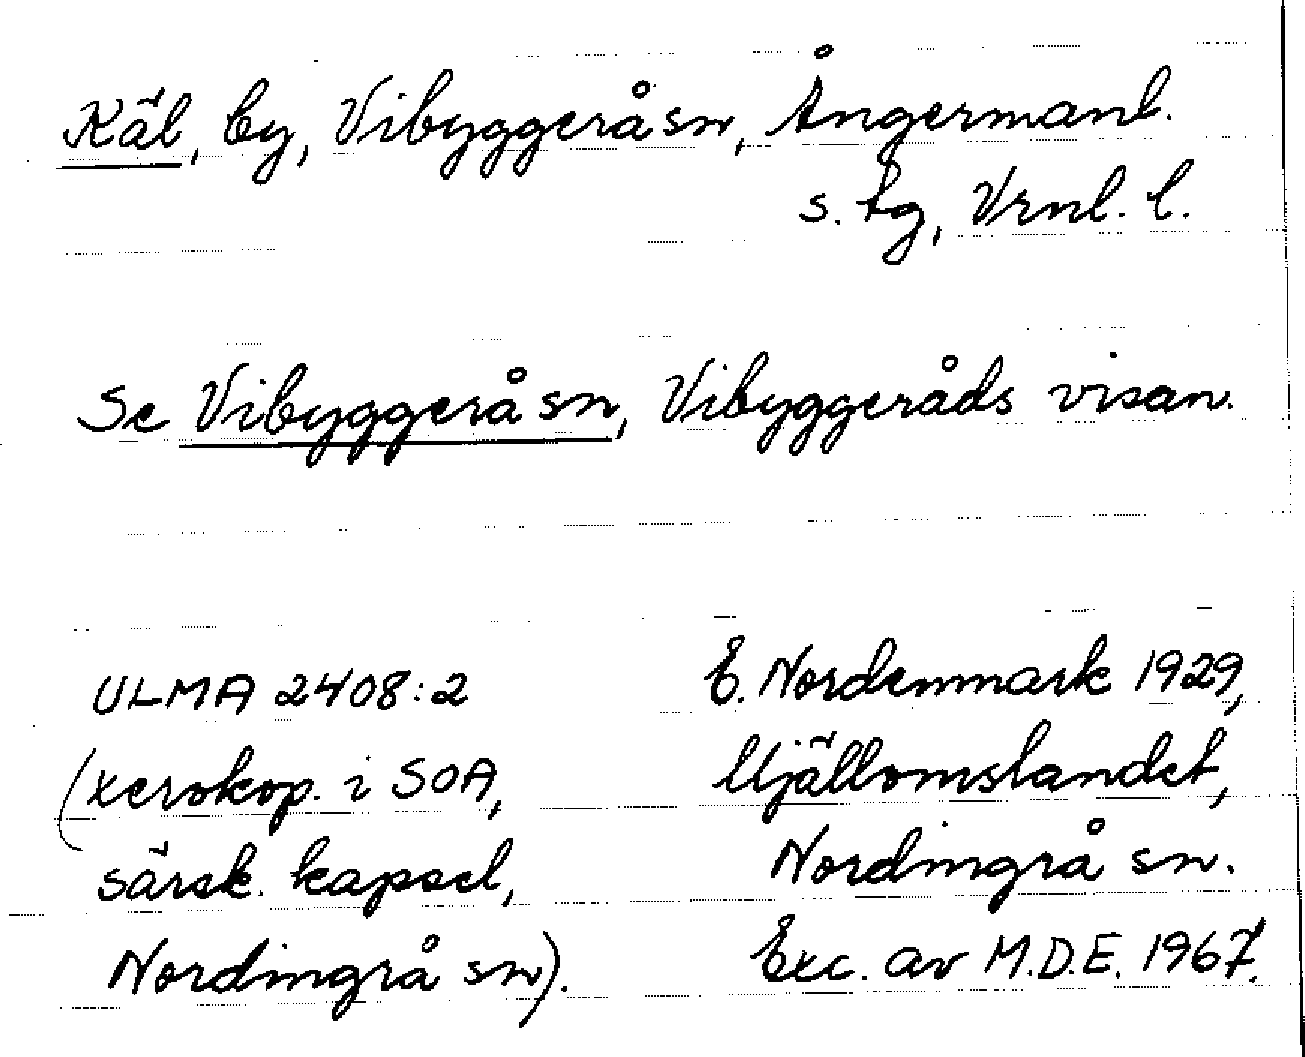 Käl, by, Vibyggerå sn, Ångermanl.
s. tg, Vrnl. l.
Se Vibyggerå sn, Vibyggeråds visan.
ULMA 2408:2
(xerokop. i SOA,
särsk. kapsel,
Nordingrå sn).
E. Nordenmark 1929,
Ujällomslandet,
Nordingrå sn.
Exc. av M.D.E. 1967.